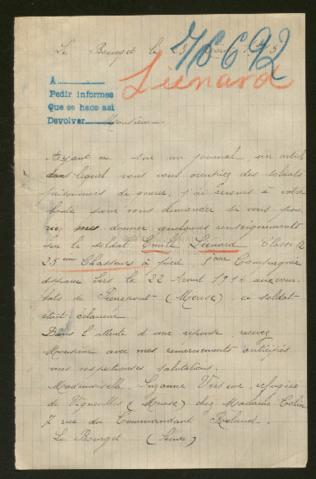 Le Bourget le
76692
Lienard
A
Pedir informes
Que se hace asi
Devolver
Monsieur
Ayant vu sur un journal, un article
dans lequel vous vous occupiez des soldats
prisonniers de guerre, j'ai recours à votre
bonté pour vous demander si vous pour
me donner quelques renseignements
sur le soldat Emile Lienard Classe
25ème Chasseurs à pied Compagnie
disparu le 22 Aout 1914 aux com
bats de (Meuse) ce soldat
était clairon
Dans l'attente d'une reponse recevez
Monsieur avec mes remerciements anticipés
mes respectueuses salutations.
Mademoiselle Suzanne refugiée
de Vigneulles (Meuse) chez Madame Colin
7 rue du Commandant Roland
Le Bourget (Seine)